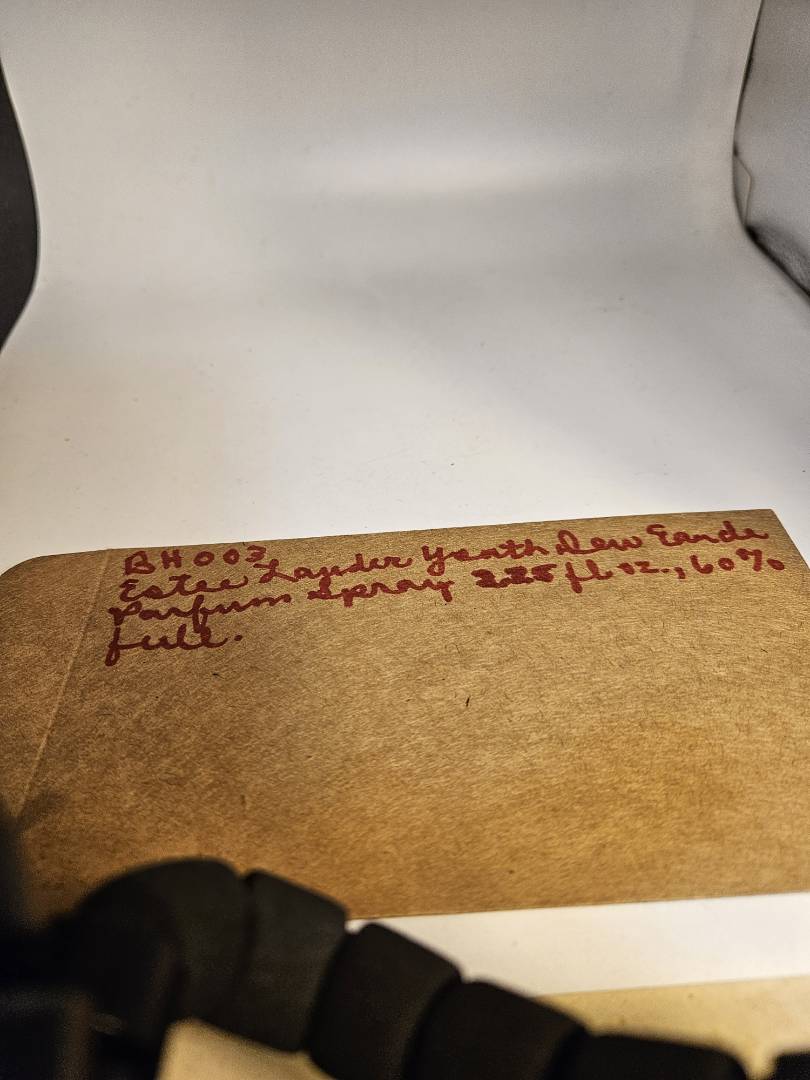 BH003
Estee Lauder Youth Dew Eau de
Parfum Spray 2.25 fl oz., 60%
full.